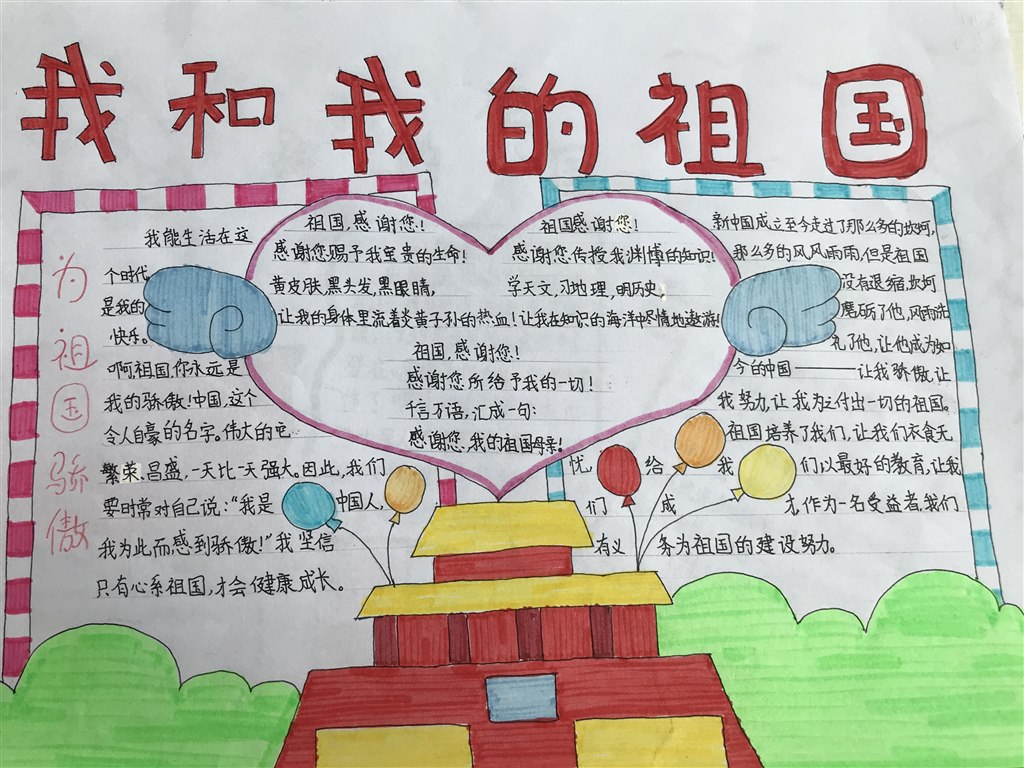 我和我的祖国
为祖国骄傲
我能生活在这
个时代
是我的
快乐。
啊,祖国你永远是
我的骄傲!中国,这个
令人自豪的名字。伟大的它
繁荣、昌盛,一天比一天强大。因此,我们
要时常对自己说:“我是中国人,
我为此而感到骄傲!”我坚信
只有心系祖国,才会健康成长。
祖国,感谢您!
感谢您赐予我宝贵的生命!
黄皮肤,黑头发,黑眼睛,
让我的身体里流着炎黄子孙的热血!
祖国感谢您!
感谢您传授我渊博的知识!
学天文,习地理,明历史,
让我在知识的海洋中尽情地遨游!
祖国,感谢您!
感谢您所给予我的一切!
千言万语,汇成一句:
感谢您,我的祖国母亲!
新中国成立至今走过了那么多的坎坷,
那么多的风风雨雨,但是祖国
没有退缩,坎坷
磨砺了他,风雨洗
礼了他,让他成为如
今的中国———让我骄傲,让
我努力,让我为之付出一切的祖国。
祖国培养了我们,让我们衣食无
忧,给我们以最好的教育,让我
们成才,作为一名受益者,我们
有义务为祖国的建设努力。